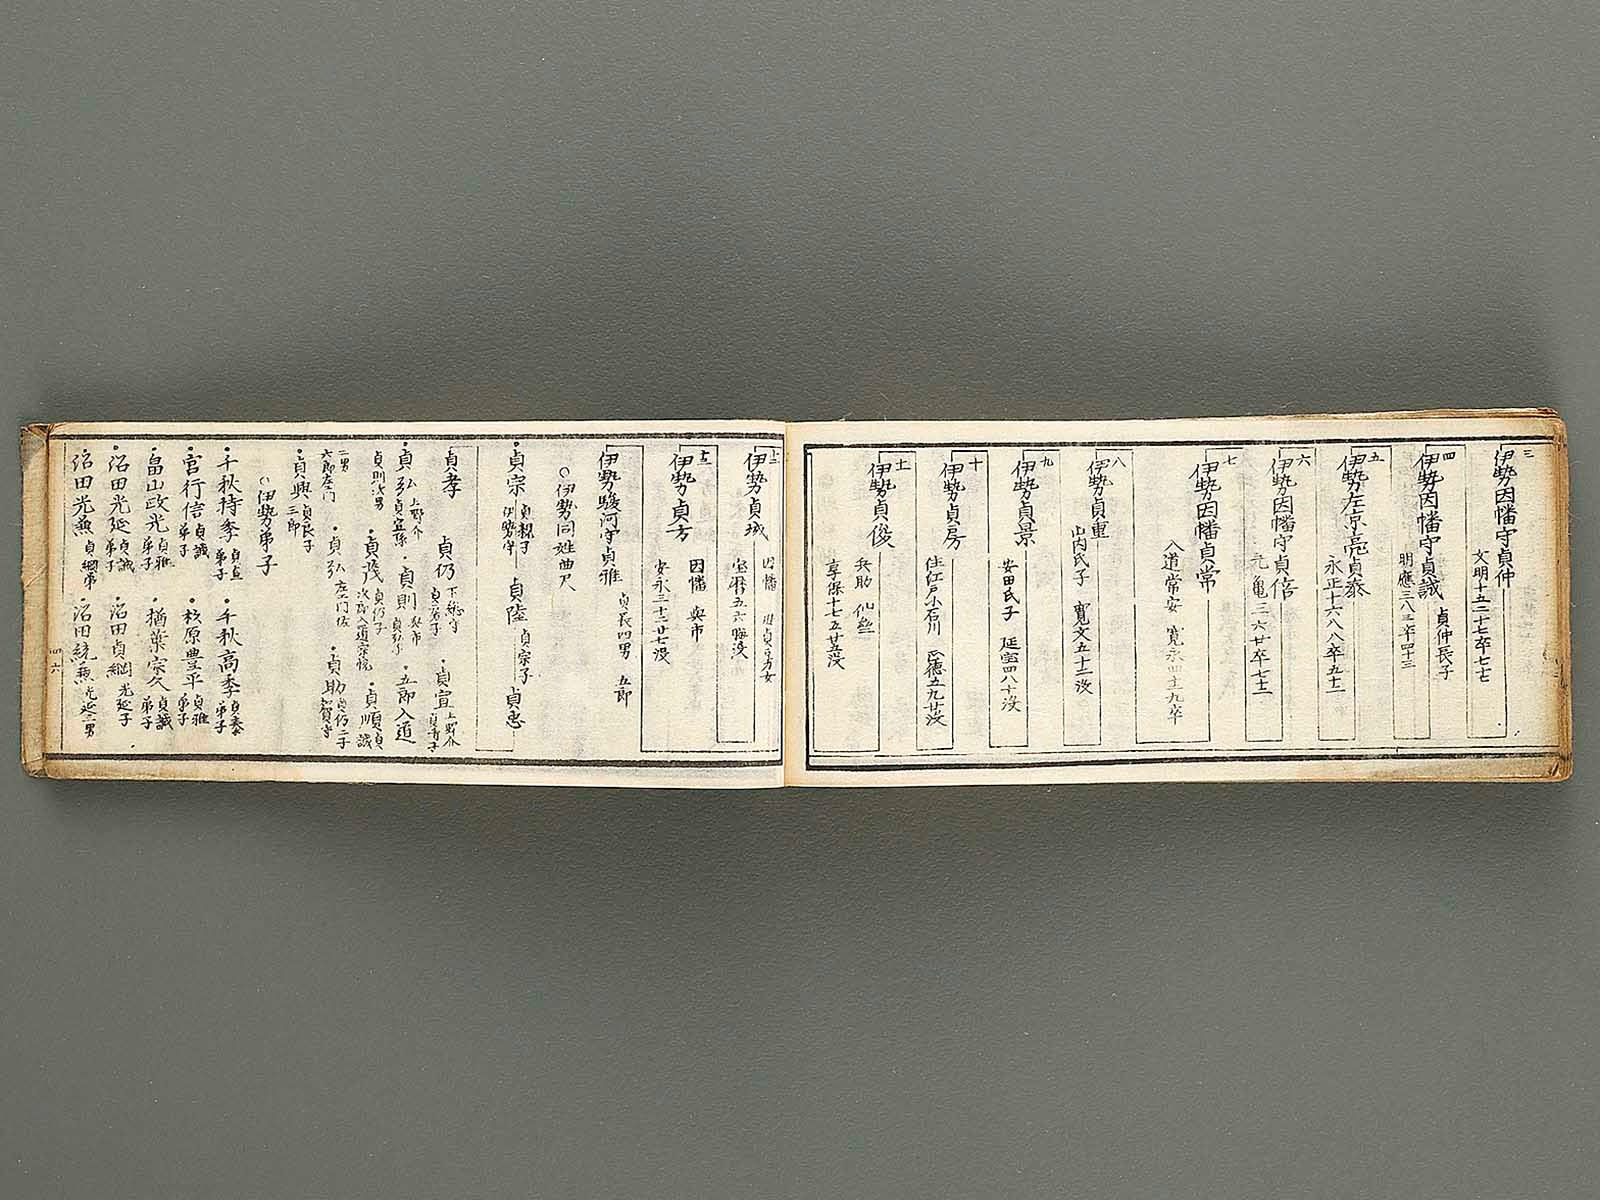 三
伊勢因幡守貞仲
文明十五二十七卒七十七
四
伊勢因幡守貞誠 貞仲長子
明應三八三卒四十三
五
伊勢左京亮貞泰
永正十六八八卒五十二
六
伊勢因幡守貞倍
元亀三六廿卒七十二
七
伊勢因幡貞常
入道常安 寛永四十一九卒
八
伊勢貞重
山内氏子 寛文五十二没
九
伊勢貞景
安田氏子 延宝四八十没
十
伊勢貞房
住江戸小石川 正徳五九廿没
十一
伊勢貞俊
兵助
享保十七五廿五没
十二
伊勢貞城
因幡
宝暦五六晦没
十三
伊勢貞方
因幡 兵市
安永三十二廿七没
伊勢駿河守貞雅 貞長四男 五郎
○伊勢同姓曲尺
・貞宗 貞親子 伊勢守 貞陸 貞宗子 貞忠
貞孝 貞仍 下総守 ・貞宣 上野介
・貞弘 上野介 貞宣孫 ・貞則 兵市 貞弘子 ・五郎入道
貞則次男 ・貞陸 貞仍子 ・貞順
二男 六郎左エ門 ・貞弘 左エ門佐 ・貞助 貞仍二子 加賀守
・貞興 貞長子 三郎
○伊勢弟子
・千秋持季 弟子 ・千秋高季 貞泰弟子
・宮行信 貞誠弟子 ・萩原豊平 貞雅弟子
・畠山政光 貞雅弟子 ・楢葉宗久 貞誠弟子
・沼田光延 貞誠弟子 ・沼田貞綱 光延子
・沼田光兼 貞綱弟 ・沼田統兼 光延三男
四六